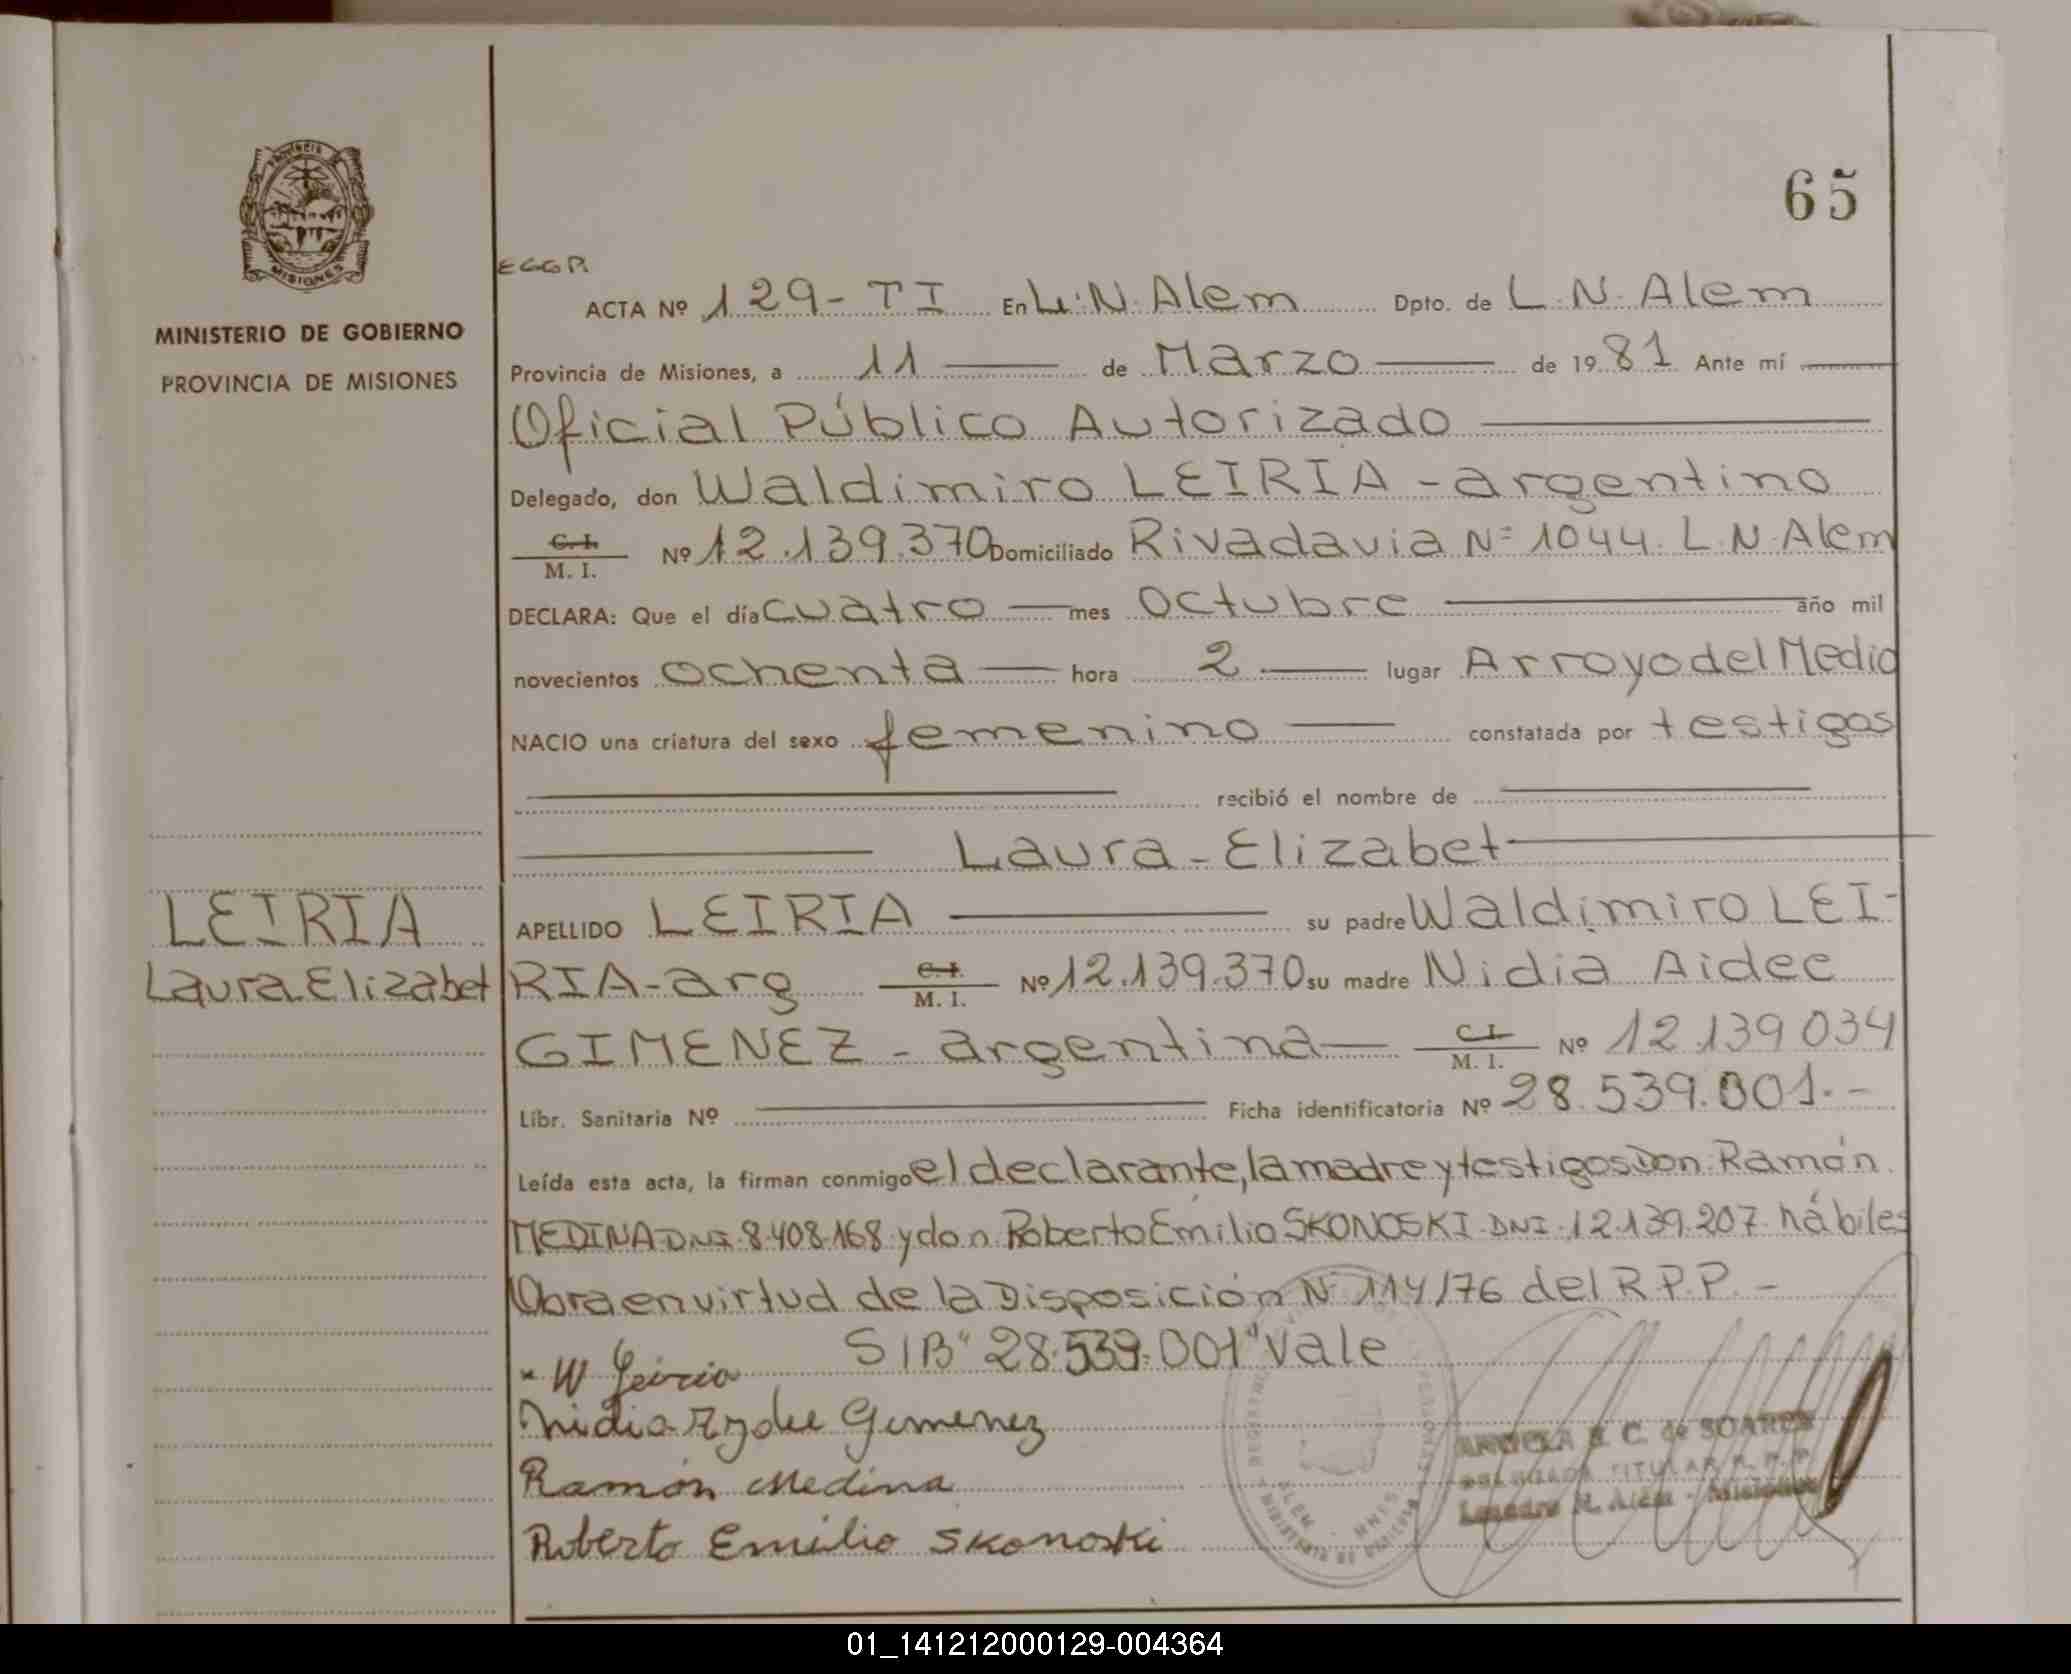 PROVINCIA
MISIONES
MINISTERIO DE GOBIERNO
PROVINCIA DE MISIONES
65
EGGR
ACTA Nº 129-TI En L.N.Alem Dpto. de L.N.Alem
Provincia de Misiones, a 11 de Marzo de 1981 Ante mí
Oficial Público Autorizado
Delegado, don Waldimiro LEIRIA - argentino
C. I.
M. I. Nº 12.139.370 Domiciliado Rivadavia Nº 1044. L.N.Alem
DECLARA: Que el día cuatro mes Octubre año mil
novecientos ochenta hora 2 lugar Arroyo del Medio
NACIO una criatura del sexo femenino constatada por testigos
recibió el nombre de
Laura-Elizabet
LEIRIA
Laura Elizabet
APELLIDO LEIRIA su padre Waldimiro LEI-
RIA-arg C. I. M. I. Nº 12.139.370 su madre Nidia Aidee
GIMENEZ - argentina C. I. M. I. Nº 12.139.034
Libr. Sanitaria Nº Ficha identificatoria Nº 28.539.001.-
Leída esta acta, la firman conmigo el declarante, la madre y testigos Don Ramón
MEDINA DNI. 8.408.168 y don Roberto Emilio SKONOSKI DNI. 12.139.207 hábiles
Obra en virtud de la Disposición Nº 114/76 del R.P.P. -
S/B "28.539.001" Vale
W Leiria
Nidia Aydee Gimenez
Ramón Medina
Roberto Emilio Skonoski
ANGELA E. C. de SOARES
DELEGADA TITULAR R. P. P.
Leandro N. Alem - Misiones
ALEM - MNES
MINISTERIO DE GOBIERNO
01_141212000129-004364